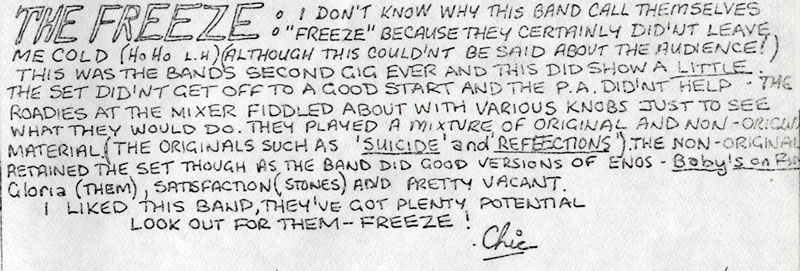 THE FREEZE : I DON'T KNOW WHY THIS BAND CALL THEMSELVES
"FREEZE" BECAUSE THEY CERTAINLY DID'NT LEAVE
ME COLD (HO HO L.H) (ALTHOUGH THIS COULD'NT BE SAID ABOUT THE AUDIENCE!)
THIS WAS THE BANDS SECOND GIG EVER AND THIS DID SHOW A LITTLE.
THE SET DID'NT GET OFF TO A GOOD START AND THE P.A. DID'NT HELP - THE
ROADIES AT THE MIXER FIDDLED ABOUT WITH VARIOUS KNOBS JUST TO SEE
WHAT THEY WOULD DO. THEY PLAYED A MIXTURE OF ORIGINAL AND NON-ORIGIN
MATERIAL. (THE ORIGINALS SUCH AS 'SUICIDE' and 'REFLECTIONS'). THE NON-ORIGINAL
RETAINED THE SET THOUGH AS THE BAND DID GOOD VERSIONS OF ENOS - Baby's on
Gloria (THEM), SATISFACTION (STONES) AND PRETTY VACANT.
I LIKED THIS BAND, THEY'VE GOT PLENTY POTENTIAL
LOOK OUT FOR THEM - FREEZE!
Chic